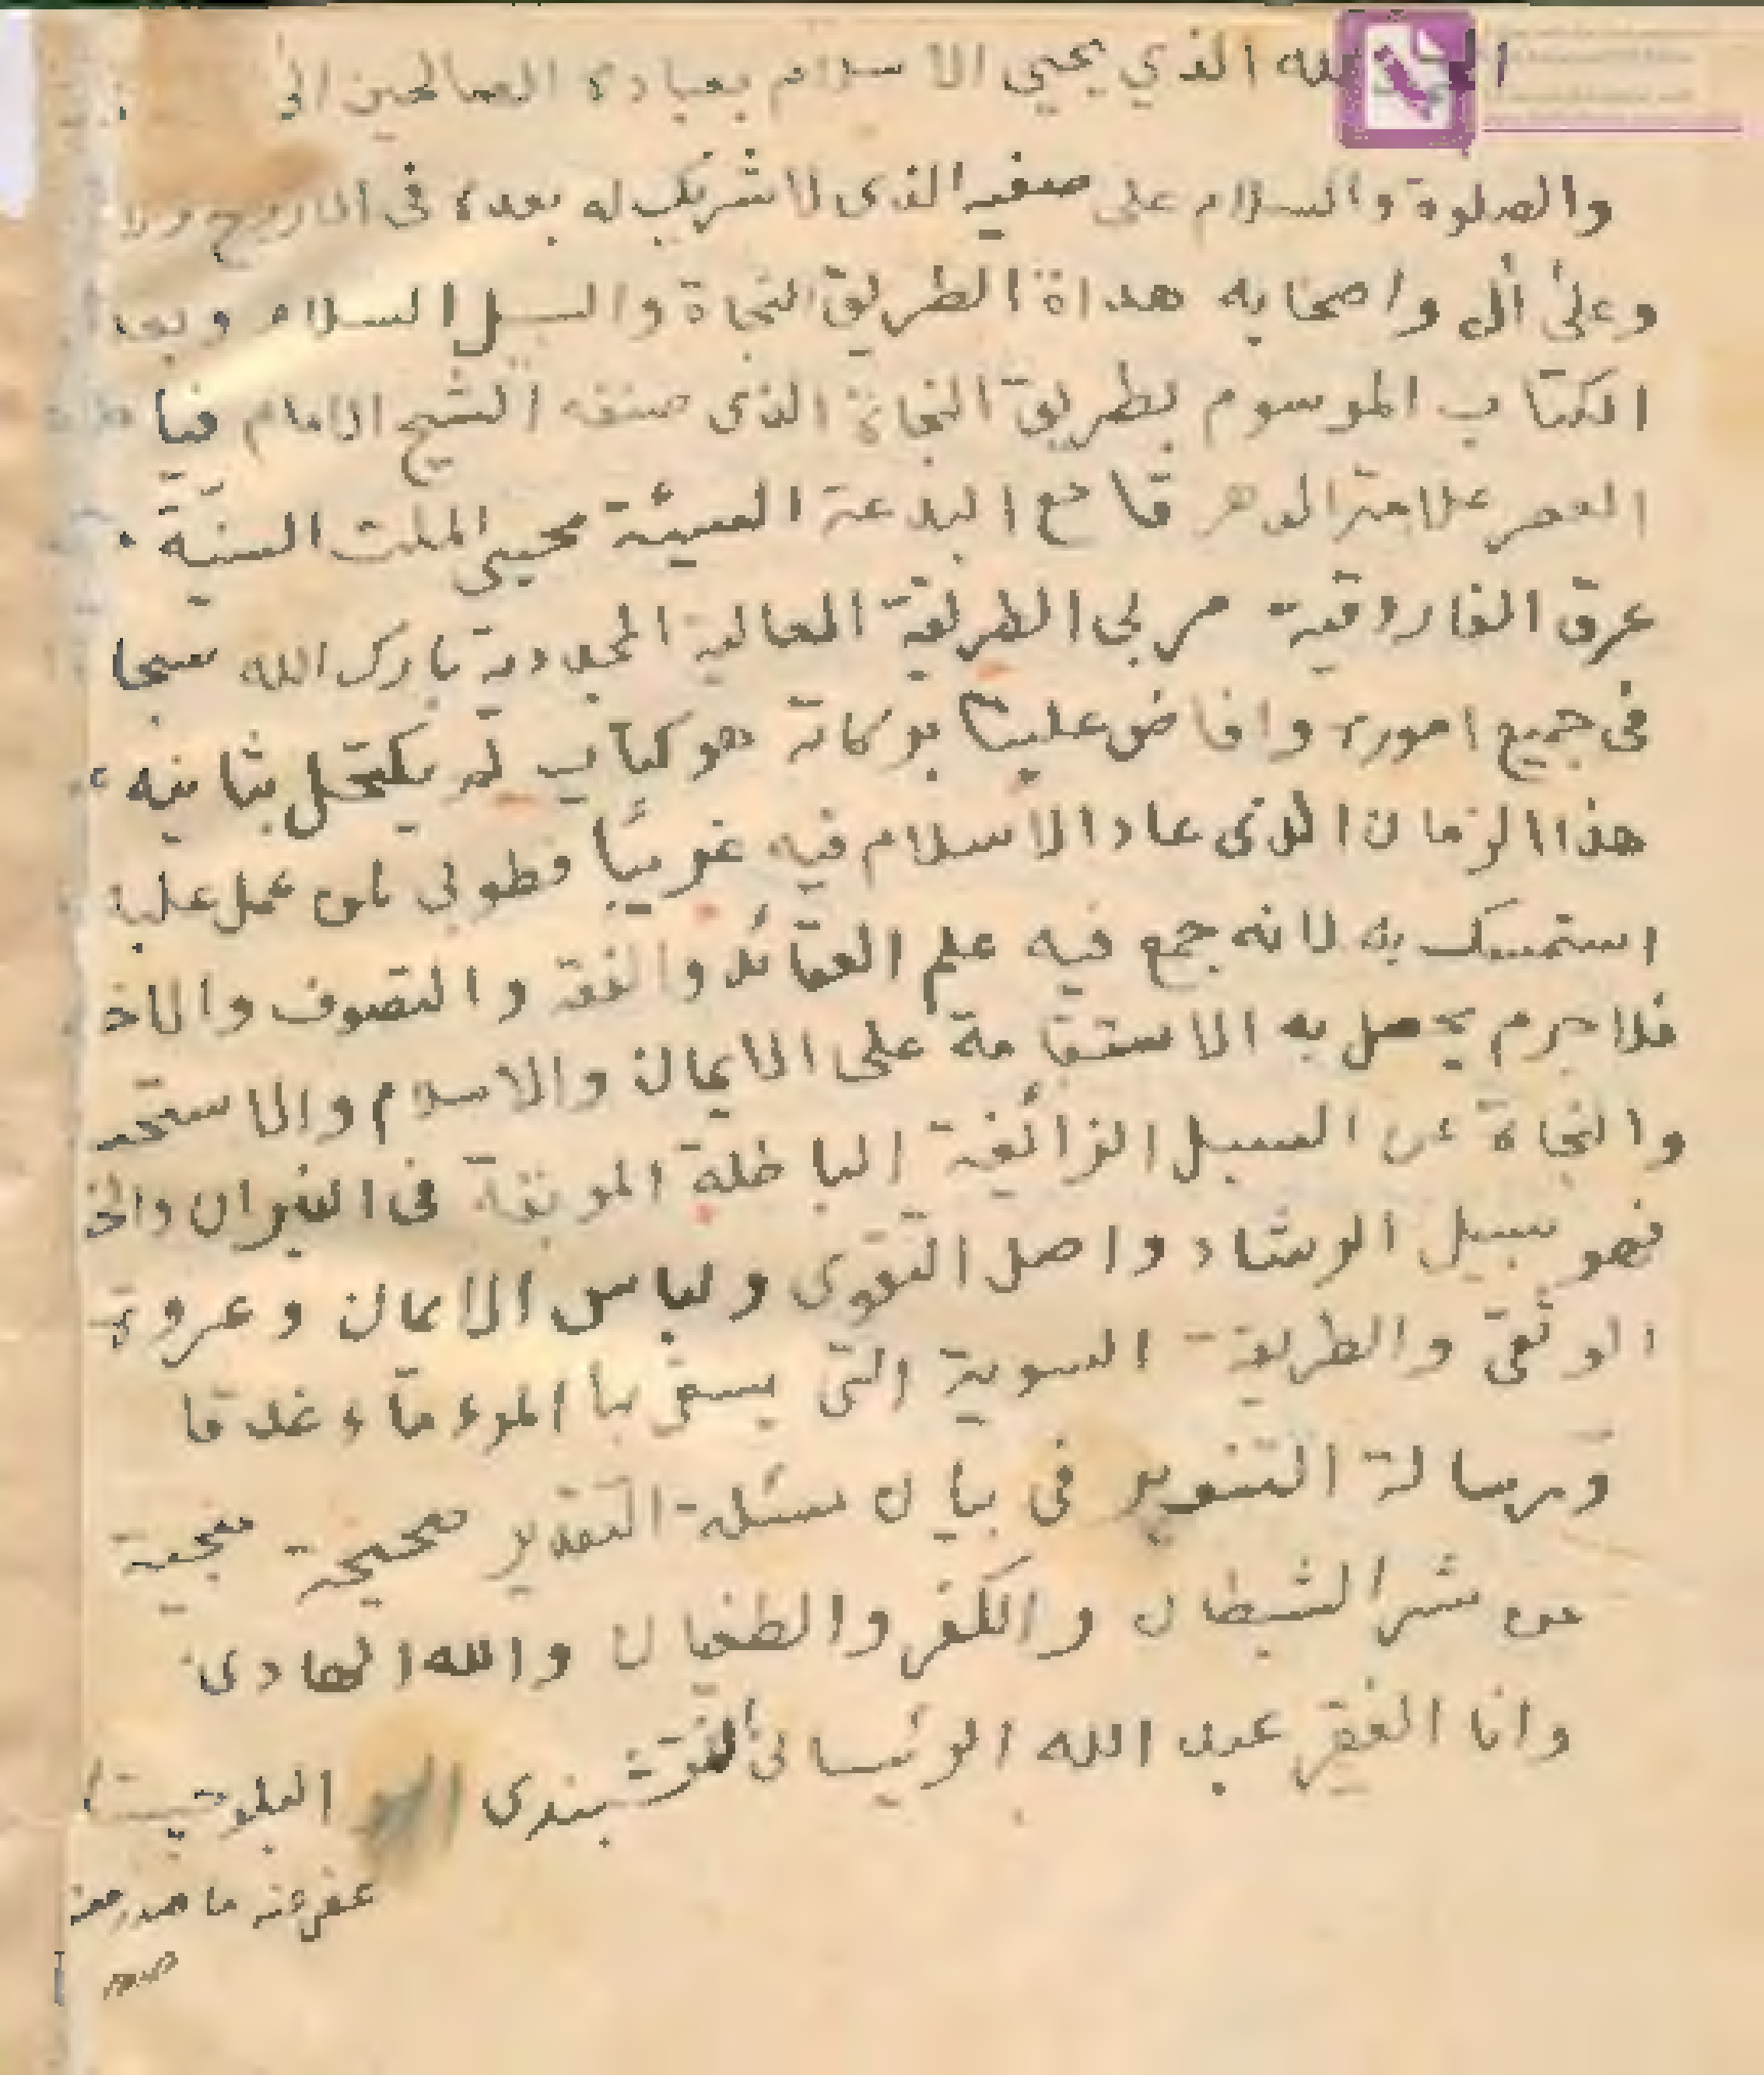 لله الذي يحيي الاسلام بعباده الصالحين الى
والصلوة والسلام على صفيه الذى لا شريك له بعده فى
وعلى أله واصحابه هداة الطريق النجاة والسبل السلام وبعد
الكتاب الموسوم بطريق النجاة الذى صنفه الشيخ الامام
العصر علامة الدهر قامع البدعة السيئة محيي الملت السنية
عرق الفاروقية مربى الطريقة العالية المجددية بارك الله سبحا
فى جميع اموره وافاض علينا بركاته هو كتاب لم يكتحل بثانيه
هذا الزمان الذى عاد الاسلام فيه غريبًا فطوبى لمن عمل عليه
استمسك به لانه جمع فيه علم العقائد والفقه والتصوف والاخ
فلا جرم يحصل به الاستقامة على الايمان والاسلام والاستحـ
والنجاة عن السبيل الزائغة الموبقة فى النيران والخ
فهو سبيل الرشاد واصل التقوى ولباس الايمان وعروة
الوثقى والطريقة السوية التى المرء ماء غدقا
ورسالة التنوير فى بيان سئلة التقدير صحيحة منجية
عن شر الشيطان والكفر والطغيان والله الهادى
وانا الفقير عبد الله النقشبندى
عفى عنه ما صدر منه